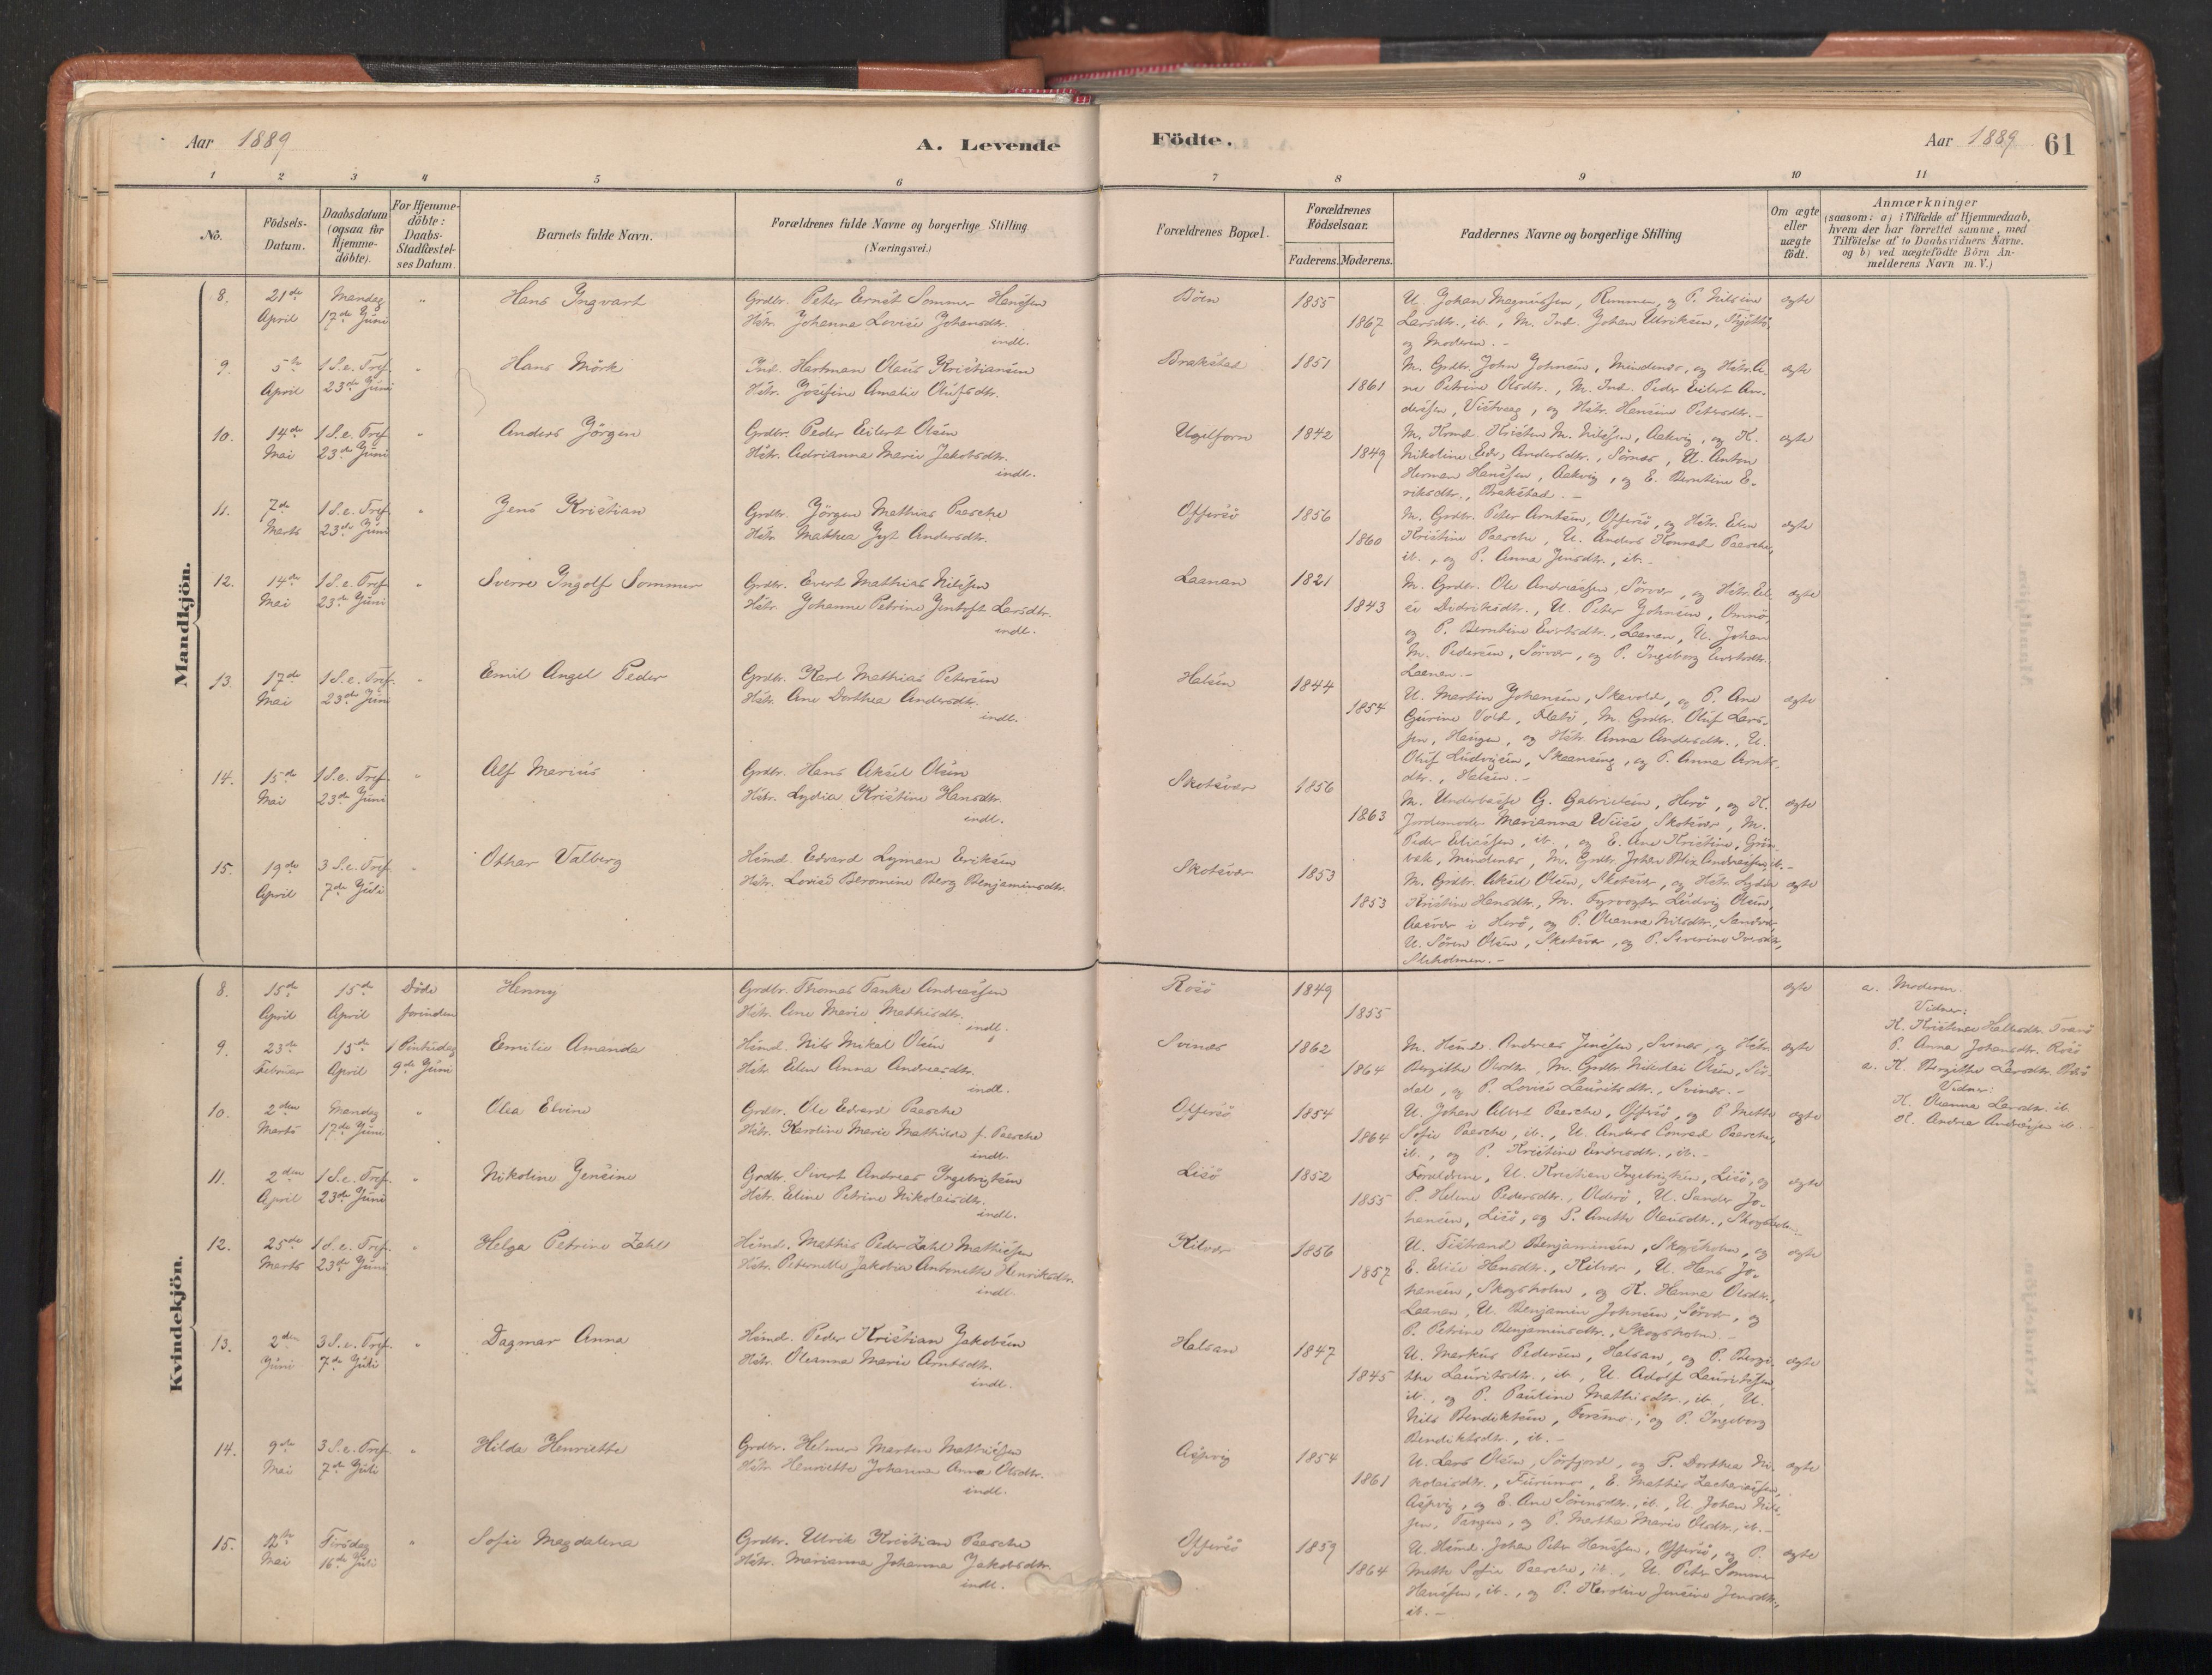 Aar 1889
A. Levende
Födte.
Aar 1889
61
1 2 3 4 5 6 7 8 9 10 11
No.
Födsels-Datum.
Daabsdatum (ogsaa for Hjemme-döbte).
For Hjemme-döbte: Daabs-Stadfæstel-ses Datum.
Barnets fulde Navn.
Forældrenes fulde Navne og borgerlige Stilling
(Næringsvei.)
Forældrenes Bopæl.
Forældrenes Födselsaar.
Faderens. Moderens.
Faddernes Navne og borgerlige Stilling
Om ægte eller uægte födt.
Anmærkninger
(saasom: a) i Tilfælde af Hjemmedaab,
hvem der har forrettet samme, med
Tilföielse af to Daabsvidners Navne.
og b) ved uægtefödte Börn An-
melderens Navn m. V.)
Mandkjön.
8. 21de April Mandag 17de Juni " Hans Ingvart
Grdbr. Peter Ernst Sommer Hanssen
Hstr. Johanna Lovise Johansdtr.
indl.
Böen 1855 1867
U. Johan Magnussen, Rummen, og P. Nilsine
Larsdtr., ib., M. Ind. Johan Ulriksen,
og Moderen. -
ægte
9. 5te April 1 S. e. Tref. 23de Juni " Hans Mörk
Ind. Hartman Olaus Kristiansen
Hstr. Josefine Amalie Olufsdtr.
Brakstad 1851 1861
M. Grdbr. John Johnsen, Mindenes, og Hstr. A-
ne Petrine Olsdtr., M. Ind. Peder Eilert An-
derssen, Vistvaag, og Hstr. Hansine Petersdtr. -
ægte
10. 14de Mai 1 S. e. Tref. 23de Juni " Anders Jörgen
Grdbr. Peder Eilert Olsen
Hstr. Adrianna Marie Jakobsdtr.
indl.
Ugelforn 1842 1849
M. Kristen M. Nilssen, Aakvig, og K.
Nikoline Andersdtr., Sörnes, U. Anton
Herman Hanssen, Aakvig, og E. Berntine E-
riksdtr., Brakstad. -
ægte
11. 7de Marts 1 S. e. Tref. 23de Juni " Jens Kristian
Grdbr. Jörgen Mathias Paasche
Hstr. Mathea Gyt Andersdtr.
Offersö 1856 1860
M. Grdbr. Peter Arntsen, Offersö, og Hstr. Elen
Kristine Paasche, U. Anders Konrad Paasche,
ib., og P. Anna Jensdtr., ib. -
ægte
12. 14de Mai 1 S. e. Tref. 23de Juni " Sverre Ingolf Sommer
Grdbr. Evert Mathias Nilssen
Hstr. Johanne Petrine Jentoft Larsdtr.
indl.
Laanan 1821 1843
M. Grdbr. Ole Andreassen, Sörvær, og Hstr. Eli-
se Didriksdtr., U. Peter Johnsen, Omnö,
og P. Berntine Evertsdtr., Laanan, U. Johan
M. Pedersen, Sörvær, og P. Ingeborg Evertsdtr.
Laanan. -
ægte
13. 17de Mai 1 S. e. Tref. 23de Juni " Emil Angel Peder
Grdbr. Karl Mathias Petersen
Hstr. Ane Dorthea Andersdtr.
indl.
Halsen 1844 1854
U. Martin Johansen, Skavold, og P. Ane
Gurine Vold, Flatö, M. Grdbr. Oluf Lars-
sen, Haugen, og Hstr. Anna Andersdtr., U.
Oluf Ludvigsen, Skaansing, og P. Anna Arnts-
dtr., Halsen. -
ægte
14. 15de Mai 1 S. e. Tref. 23de Juni " Alf Marius
Grdbr. Hans Aksel Olsen
Hstr. Lydia Kristine Hansdtr.
indl.
Skotsvær 1856 1863
M. G. Gabrielsen, Herö, og K.
Jordemoder Marianna Wiise, Skotsvær, M.
Peder Eliassen, ib., og E. Ane Kristine Grön-
bek, Mindenes, M. Grdbr. Johan Blix Andreassen, ib. -
ægte
15. 19de April 3 S. e. Tref. 7de Juli " Othar Valberg
Hsmd. Edvard Lyman Eriksen
Hstr. Lovise Beromine Berg Benjaminsdtr.
Skotsvær 1853 1853
M. Grdbr. Aksel Olsen, Skotsvær, og Hstr. Lydia
Kristine Hansdtr., M. Fyrvogter Ludvig Olsen,
Aasvær i Herö, og P. Oleanna Nilsdtr., Sandvær,
U. Sören Olsen, Skotsvær, og P. Severine Iversdtr.,
-
ægte
Kvindekjön.
8. 15de April 15de April Döde forinden Henny
Grdbr. Thomas Tanke Andreassen
Hstr. Ane Marie Mathisdtr.
indl.
Rosö 1849 1855
ægte
a. Moderen.
Vidner:
K. Kristense Halvdtr. Tranö
P. Anna Johansdtr. Rosö
9. 23de Februar 15de April 1 Pintsedag 9de Juni Emilie Amanda
Hsmd. Nils Mikal Olsen
Hstr. Elen Anna Andreasdtr.
indl.
Svinæs 1862 1864
M. Hsmd. Andreas Jenssen, Svinæs, og Hstr.
Bergithe Olsdtr., M. Grdbr. Nikolai Olsen, Sör-
dal, og P. Lovise Lauritsdtr., Svinæs. -
ægte
a. K. Bergithe Larsdtr. Rosö
Vidner:
K. Oleanna Larsdtr. ib.
U. Andrea Andreassen ib.
10. 2den Marts Mandag 17de Juni " Olea Elvine
Grdbr. Ole Edvard Paasche
Hstr. Karoline Marie Mathilde f. Paasche
indl.
Offersö 1854 1864
U. Johan Albert Paasche, Offersö, og P. Mette
Sofie Paasche, ib., U. Anders Conrad Paasche,
ib., og P. Kristine Andreasdtr., ib. -
ægte
11. 2den April 1 S. e. Tref. 23de Juni " Nikoline Jensine
Grdbr. Sivert Andreas Ingebrigtsen
Hstr. Eline Petrine Nikolaisdtr.
indl.
Lisö 1852 1855
Forældrene, U. Kristian Ingebrigtsen, Lisö, og
P. Helene Pedersdtr., Olderö, U. Sander Jo-
hansen, Lisö, og P. Anette Olausdtr.,
ægte
12. 25de Marts 1 S. e. Tref. 23de Juni " Helga Petrine Zahl
Hsmd. Mathis Peder Zahl Mathissen
Hstr. Peternelle Jakobia Antonette Henriksdtr.
indl.
Kilvær 1856 1857
U. Tistrand Benjaminsen, Skogsholm, og
E. Elise Hansdtr., Kilvær, U. Hans Jo-
hansen, Skogsholm, og K. Hanna Olsdtr.,
Laanan, U. Benjamin Johnsen, Sörvær, og
P. Petrine Benjaminsdtr., Skogsholm. -
ægte
13. 2den Juni 3 S. e. Tref. 7de Juli " Dagmar Anna
Hsmd. Peder Kristian Jakobsen
Hstr. Oleanna Marie Arntsdtr.
indl.
Halsan 1847 1845
U. Markus Pedersen, Halsan, og P. Bergi-
the Lauritsdtr., ib., U. Adolf Lauritssen,
ib., og P. Pauline Mathisdtr., ib., U.
Nils Bendiktsen, Forsmo, og P. Ingeborg
Bendiktsdtr., ib. -
ægte
14. 9de Mai 3 S. e. Tref. 7de Juli " Hilda Henriette
Grdbr. Helmer Martin Mathissen
Hstr. Henriette Johanna Anna Olsdtr.
indl.
Aspvig 1854 1861
U. Lars Olsen, Sörfjord, og P. Dorthea Ni-
kolaisdtr., Furumo, E. Mathis Zachariassen,
Aspvig, og E. Ane Sörensdtr., ib., U. Johan Nils-
sen, Tangen, og P. Martha Marie Olsdtr., ib. -
ægte
15. 12te Mai Tirsdag 16de Juli " Sofie Magdalena
Grdbr. Ulrik Kristian Paasche
Hstr. Marianna Johanna Jakobsdtr.
indl.
Offersö 1859 1864
U. Hsmd. Johan Peter Hanssen, Offersö, og P.
Mette Sofie Paasche, ib., U. Peter Sommer
Hanssen, ib., og P. Karoline Jensine Jensdtr.,
ib. -
ægte